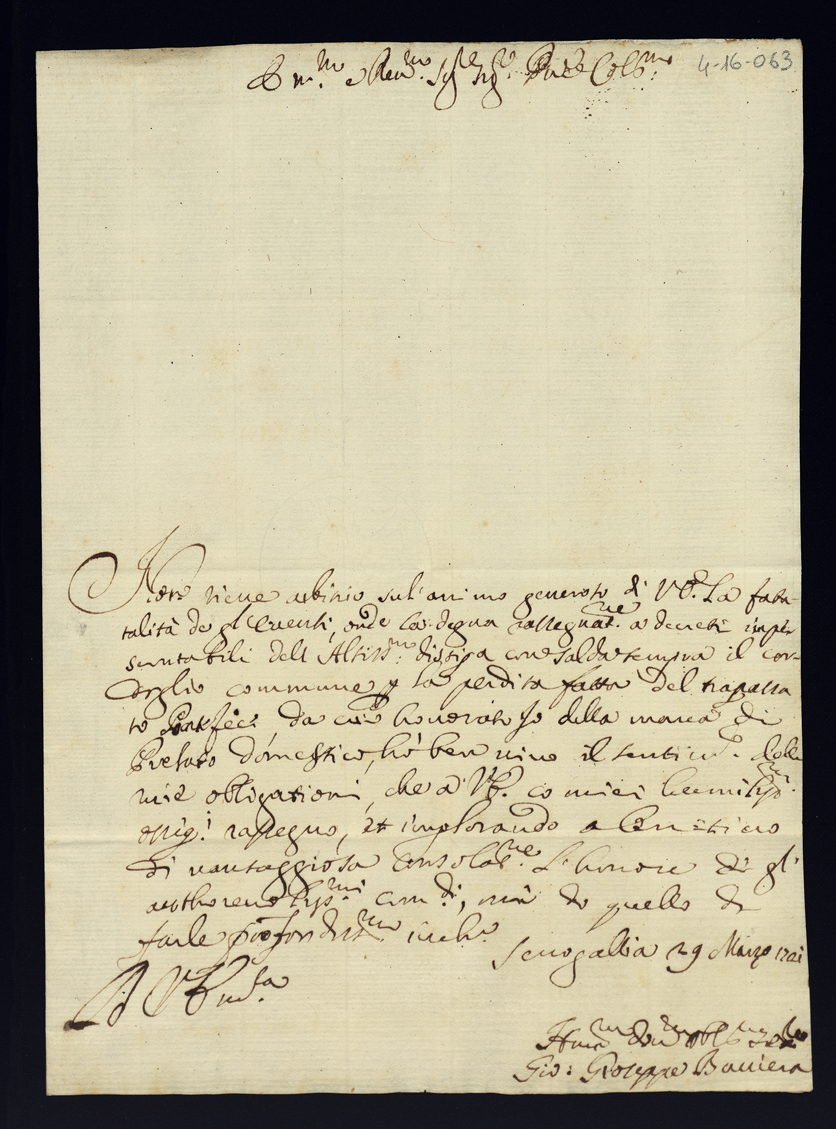 Em.mo e Rev.mo Sig.re Sig.re P'ne Col.mo 4-16-063
Non tiene arbitrio su l'animo generoso di V.E. La fata-
talità de gl'Eventi, onde la degna rassegnat.ne a decreti impr-
scrutabili dell'Altiss.mo dissipa con salda tempra il cor-
doglio commune p la perdita fatta del trapassa
to Pontefice. da cui honorato Io della manca di
Prelato domestico, hò ben vivo il sentim.to delle
mie obligationi, che à V.E. co miei humilis.mi
osseq.i rassegno, et implorando al
di vantaggiosa consolat.ne L'honore di gl'
authorevolis.mi com.di, non do quello di
farle profondiss.mo inch.o
Senogallia 29 Marzo 1721
Di V. Em.za
Hum.mo Dev.mo Obl.mo Ser.re
Gio: Gioseppe Baviera